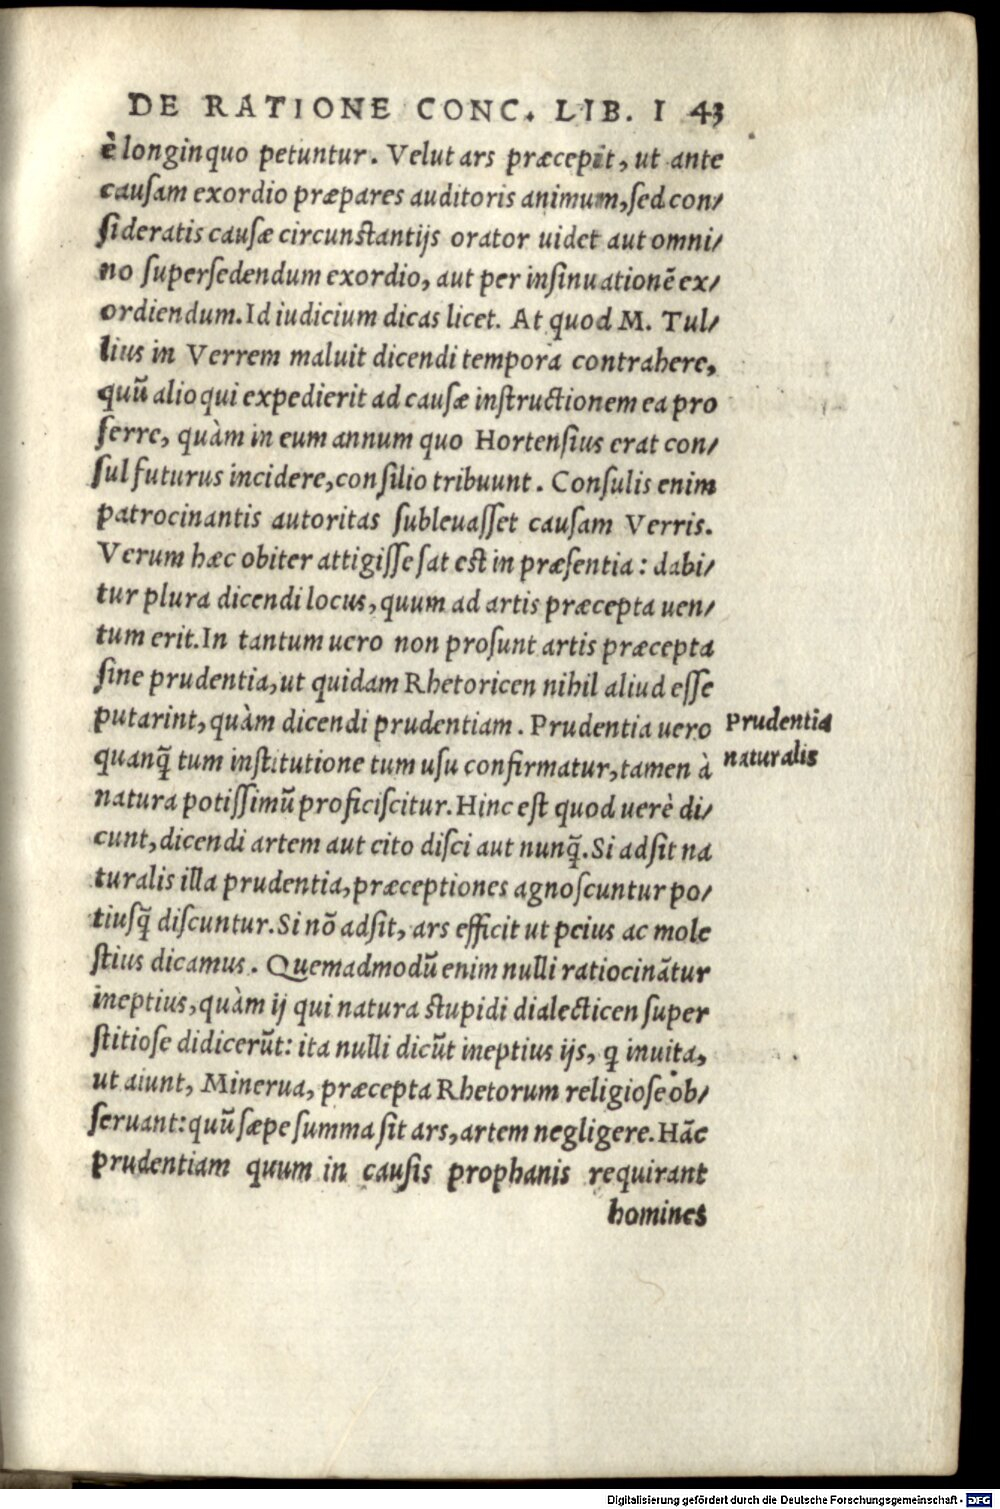 DE RATIONE CONC. LIB. I 43
è longinquo petuntur. Velut ars præcepit, ut ante
causam exordio præpares auditoris animum, sed con/
sideratis causæ circunstantijs orator uidet aut omni/
no supersedendum exordio, aut per insinuationē ex/
ordiendum. Id iudicium dicas licet. At quod M. Tul/
lius in Verrem maluit dicendi tempora contrahere,
quū alioqui expedierit ad causæ instructionem ea pro
ferre, quàm in eum annum quo Hortensius erat con/
sul futurus incidere, consilio tribuunt. Consulis enim
patrocinantis autoritas subleuasset causam Verris.
Verum hæc obiter attigisse sat est in præsentia: dabi/
tur plura dicendi locus, quum ad artis præcepta uen/
tum erit. In tantum uero non prosunt artis præcepta
sine prudentia, ut quidam Rhetoricen nihil aliud esse
putarint, quàm dicendi prudentiam. Prudentia uero
Prudentia
naturalis
quanq̃ tum institutione tum usu confirmatur, tamen à
natura potissimū proficiscitur. Hinc est quod uerè di/
cunt, dicendi artem aut cito disci aut nunq̃. Si adsit na
turalis illa prudentia, præceptiones agnoscuntur po/
tiusq̃ discuntur. Si nō adsit, ars efficit ut peius ac mole
stius dicamus. Quemadmodū enim nulli ratiocinātur
ineptius, quàm ij qui natura stupidi dialecticen super
stitiose didicerūt: ita nulli dicūt ineptius ijs, q̃ inuita,
ut aiunt, Minerua, præcepta Rhetorum religiose ob/
seruant: quū sæpe summa sit ars, artem negligere. Hāc
prudentiam quum in causis prophanis requirant
homines
Digitalisierung gefördert durch die Deutsche Forschungsgemeinschaft - DFG